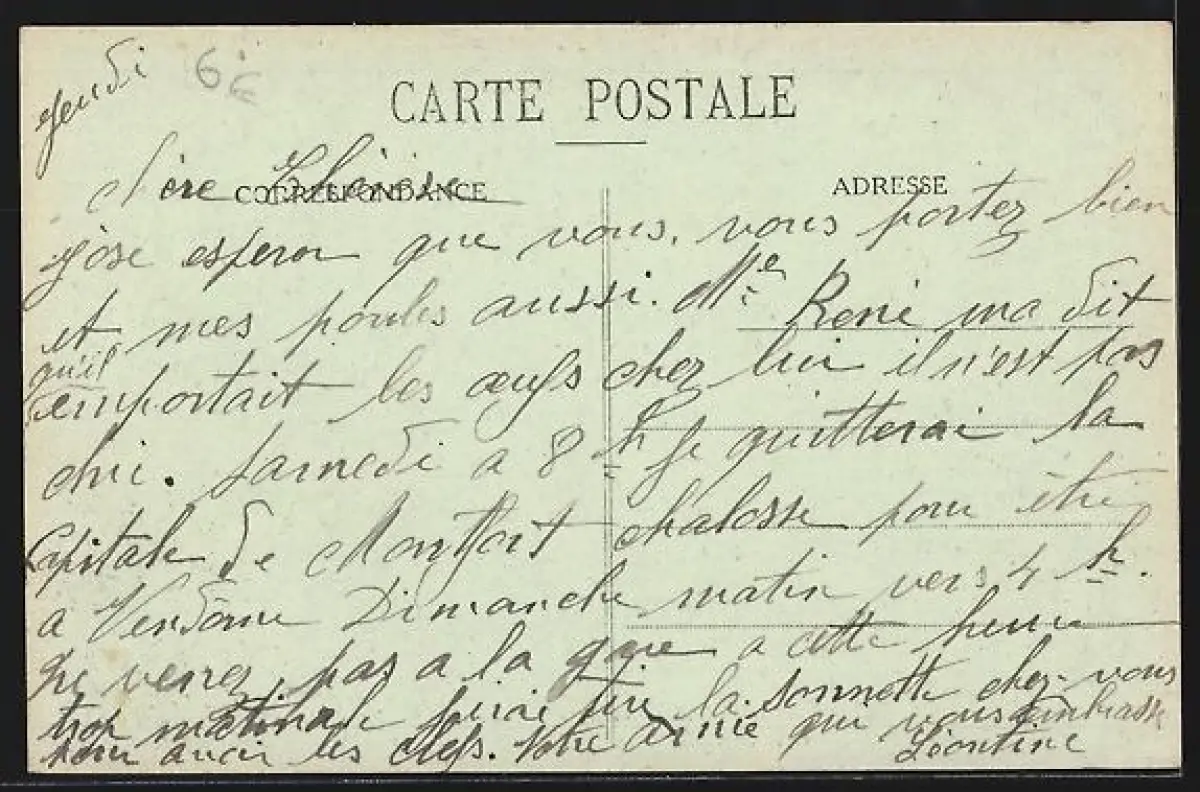 Jeudi
6€
CARTE POSTALE
CORRESPONDANCE
ADRESSE
Chère Thérèse
J'ose esperer que vous, vous portez bien
et mes poules aussi. Mr René ma dit
qu'il
emportait les œufs chez lui il n'est pas
chic. Samedi a 8 h je quitterai la
Capitale de Montfort chalosse pour être
a Vendôme Dimanche matin vers 4 h.
Ne venez pas a la gare a cette heure
trop matinale j'irai tire la sonnette chez vous
pour avoir les clefs. Votre amie qui vous embrasse
Léontine